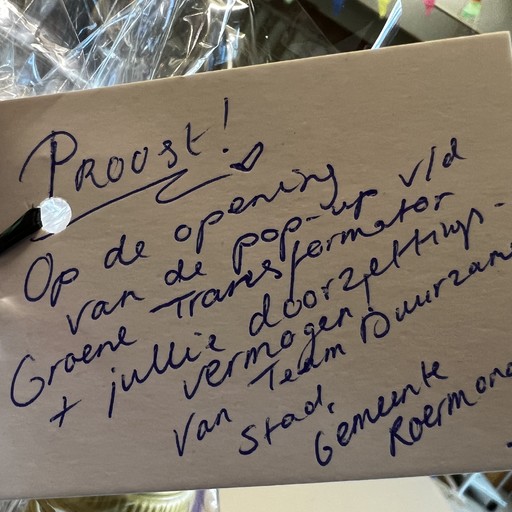 Proost!
Op de opening
van de pop-up v/d
Groene Transformator
+ jullie doorzettings-
vermogen!
Van Team Duurzame
Stad,
Gemeente
Roermond